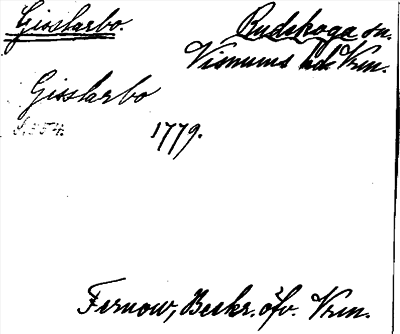 Gisslarbo.
Rudskoga sn.
Visnums hd. Vrm.
Gisslarbo
S. 554.
1779.
Fernow, Beskr. öfv. Vrm.